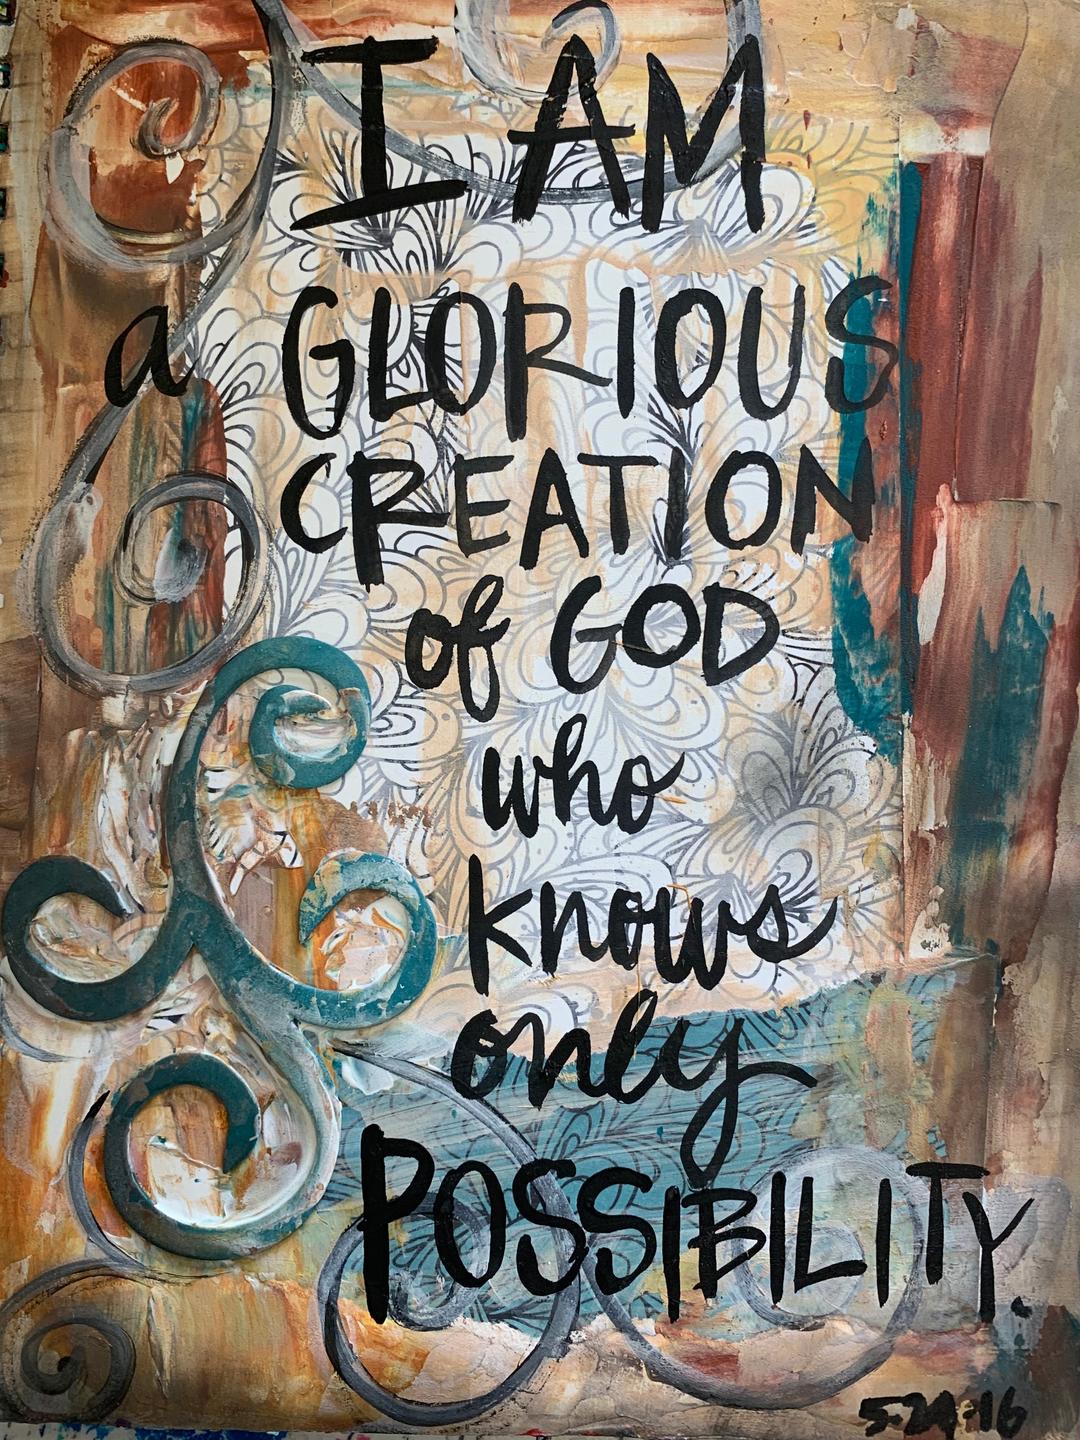 I AM
a GLORIOUS
CREATION
of GOD
who
knows
only
POSSIBILITY.
5.24.16